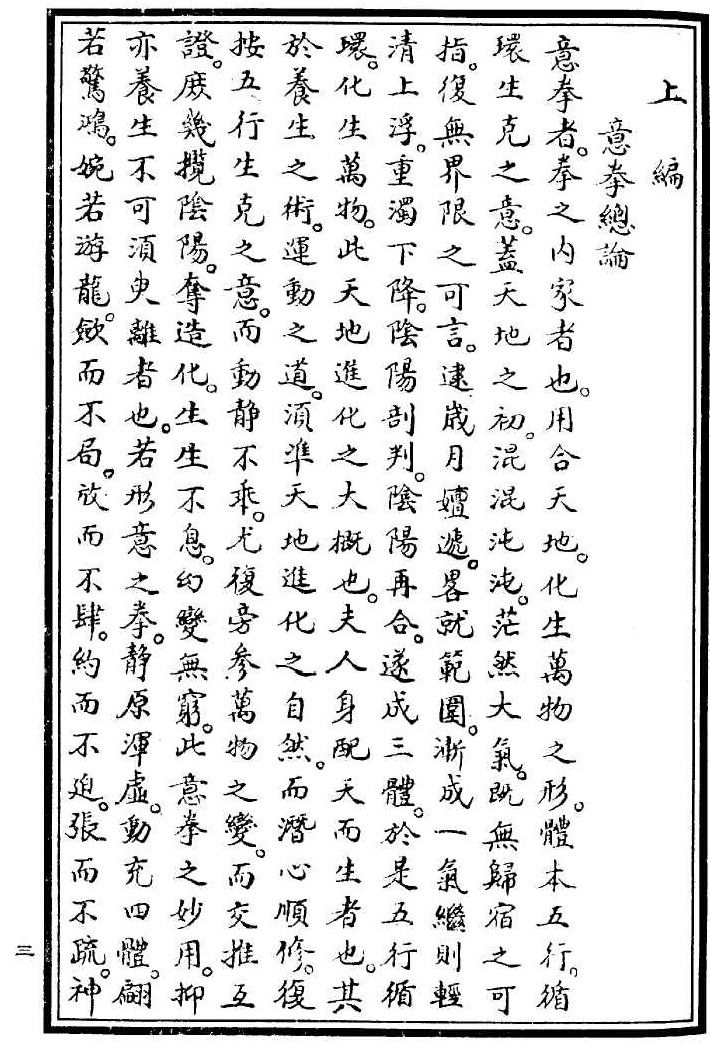 上編
意拳總論
意拳者。拳之内家者也。用合天地。化生萬物之形。體本五行。循
環生克之意。蓋天地之初。混混沌沌。茫然大氣。既無歸宿之可
指。復無界限之可言。逮歲月嬗遞。畧就範圍。漸成一氣繼則輕
清上浮。重濁下降。陰陽剖判。陰陽再合。遂成三體。於是五行循
環。化生萬物。此天地進化之大概也。夫人身配天而生者也。其
於養生之術。運動之道。須凖天地進化之自然。而潛心順修。復
按五行生克之意。而動静不乖。尤復旁參萬物之變。而交推互
證。庶幾攬陰陽。奪造化。生生不息。幻變無窮。此意拳之妙用。抑
亦養生不可須臾離者也。若形意之拳。静原渾虛。動充四體。翩
若驚鴻。婉若游龍。斂而不局。放而不肆。約而不迫。張而不疏。神
三